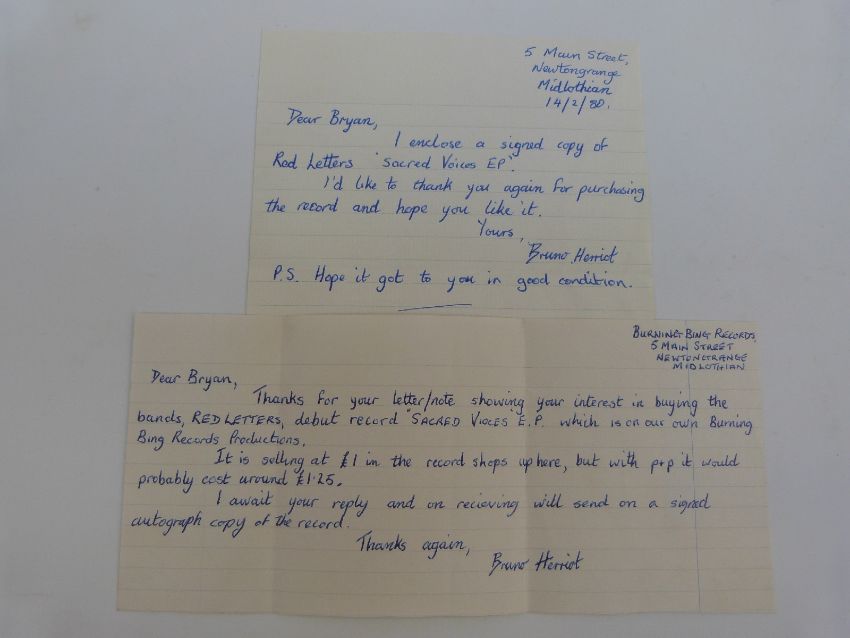 5 Main Street,
Newtongrange
Midlothian
14/2/80.
Dear Bryan,
I enclose a signed copy of
Red Letters "Sacred Voices EP".
I'd like to thank you again for purchasing
the record and hope you like it.
Yours,
Bruno Herriot
P.S. Hope it got to you in good condition.
BURNING BING RECORDS,
5 MAIN STREET
NEWTONGRANGE
MIDLOTHIAN
Dear Bryan,
Thanks for your letter/note showing your interest in buying the
bands, RED LETTERS, debut record "SACRED VOICES" E.P. which is on our own Burning
Bing Records Productions.
It is selling at £1 in the record shops up here, but with p+p it would
probably cost around £1·25.
I await your reply and on recieving will send on a signed
autograph copy of the record.
Thanks again,
Bruno Herriot